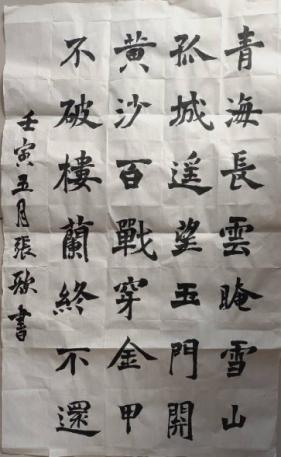 青海長雲晻雪山
孤城遥望玉門関
黄沙百戰穿金甲
不破樓蘭終不還
壬寅五月張欣書